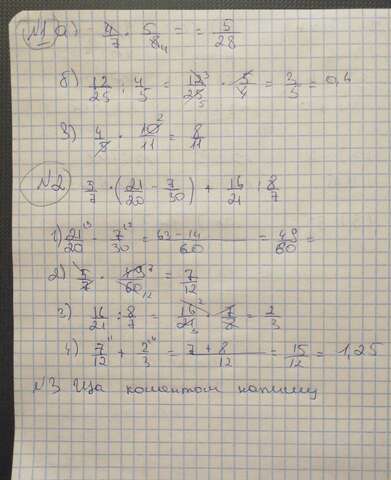 №1 а) 4/7 · 5/8 4 = = 5/28
б) 12/25 : 4/5 = 12 3/25 5 · 5/4 = 3/5 = 0,6
3) 4/5 · 10 2/11 = 8/11
№2) 5/7 · (21/20 - 7/30) + 16/21 : 8/7
1) 21/20 3 - 7/30 2 = 63-14/60 = 49/60 =
2) 5/7 · 49 7/60 12 = 7/12
3) 16/21 : 8/7 = 16 2/21 3 · 7/8 = 2/3
4) 7/12 + 2/3 4 = 7+8/12 = 15/12 = 1,25
№3 Ща коментом напишу